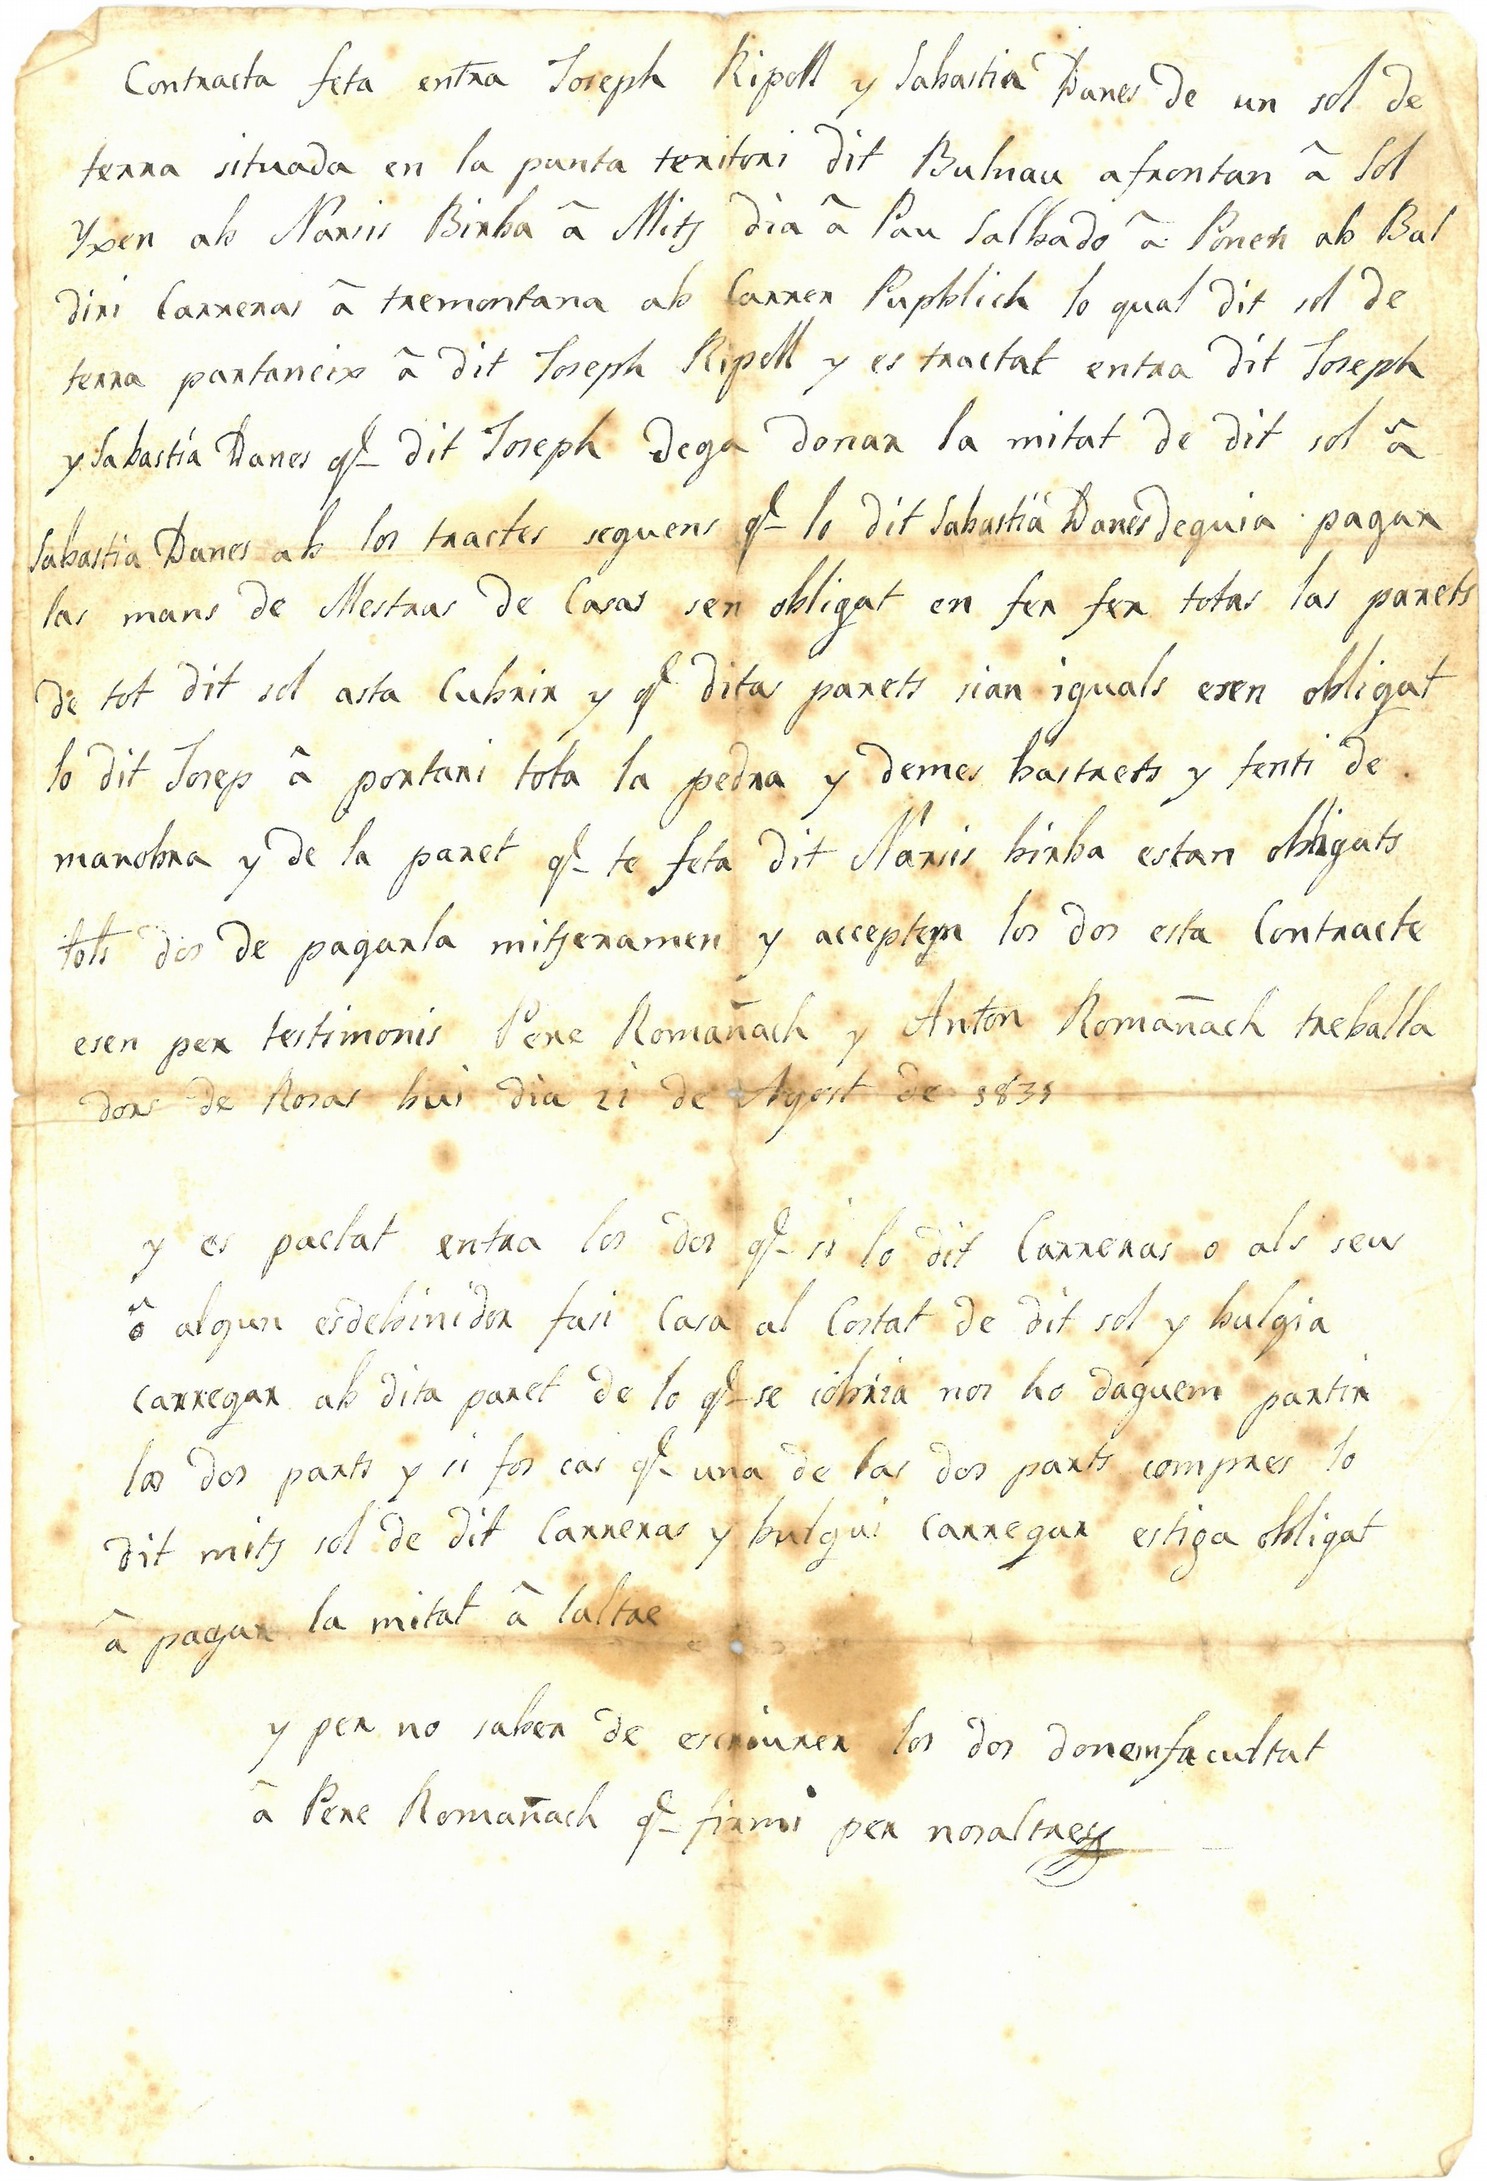 Contracta feta entra Joseph Ripoll y Sabastiá Danes de un sol de
terra situada en la punta teritori dit Bulnau afrontan â Sol
Yxen ab Narsis Birba â Mitj dia â Pau Salbado â Ponen ab Bal
diri Carreras â tremontana ab Carrer Pupblich lo qual dit sol de
terra partaneix â dit Joseph Ripoll y es tractat entra dit Joseph
y Sabastiá Danes q.e dit Joseph dega donar la mitat de dit sol â
Sabastiá Danes ab los tractes seguens q.e lo dit Sabastiá Danes deguia pagar
las mans de Mestras de Casas sen obligat en fer fer totas las parets
de tot dit sol asta Cubrir y q.e ditas parets sian iguals esen obligat
lo dit Josep â portari tota la pedra y demes bastrets y ferti de
manobra y de la paret q.e te feta dit Narsis birba estan obligats
tots dos de pagarla mitjeramen y acceptem los dos esta Contracte
esen per testimonis Pere Romañach y Anton Romañach treballa
dors de Rosas hui dia 21 de Agost de 1831
y es pactat entra los dos q.e si lo dit Carreras o als seus
ô algun esdebinidor fasi Casa al Costat de dit sol y bulgia
carregar ab dita paret de lo q.e se cobria nos ho daguem partir
las dos parts y si fos cas q.e una de las dos parts compres lo
dit mitj sol de dit Carreras y bulgui carregar estiga obligat
â pagar la mitat â laltre
y per no saber de escriurer los dos donem facultat
â Pere Romañach q.e firmi per nosaltres